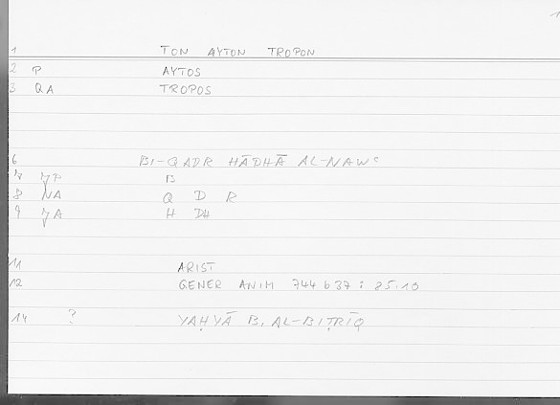 1
1 TON AYTON TROPON
2 P AYTOS
3 QA TROPOS
6 BI-QADR HĀDHĀ AL-NAWᶜ
B
8 NA Q D R
9 H DH
11 ARIST
12 GENER ANIM 744 b 37 : 85.10
14 ? YAḤYĀ B. AL-BIṬRĪQ